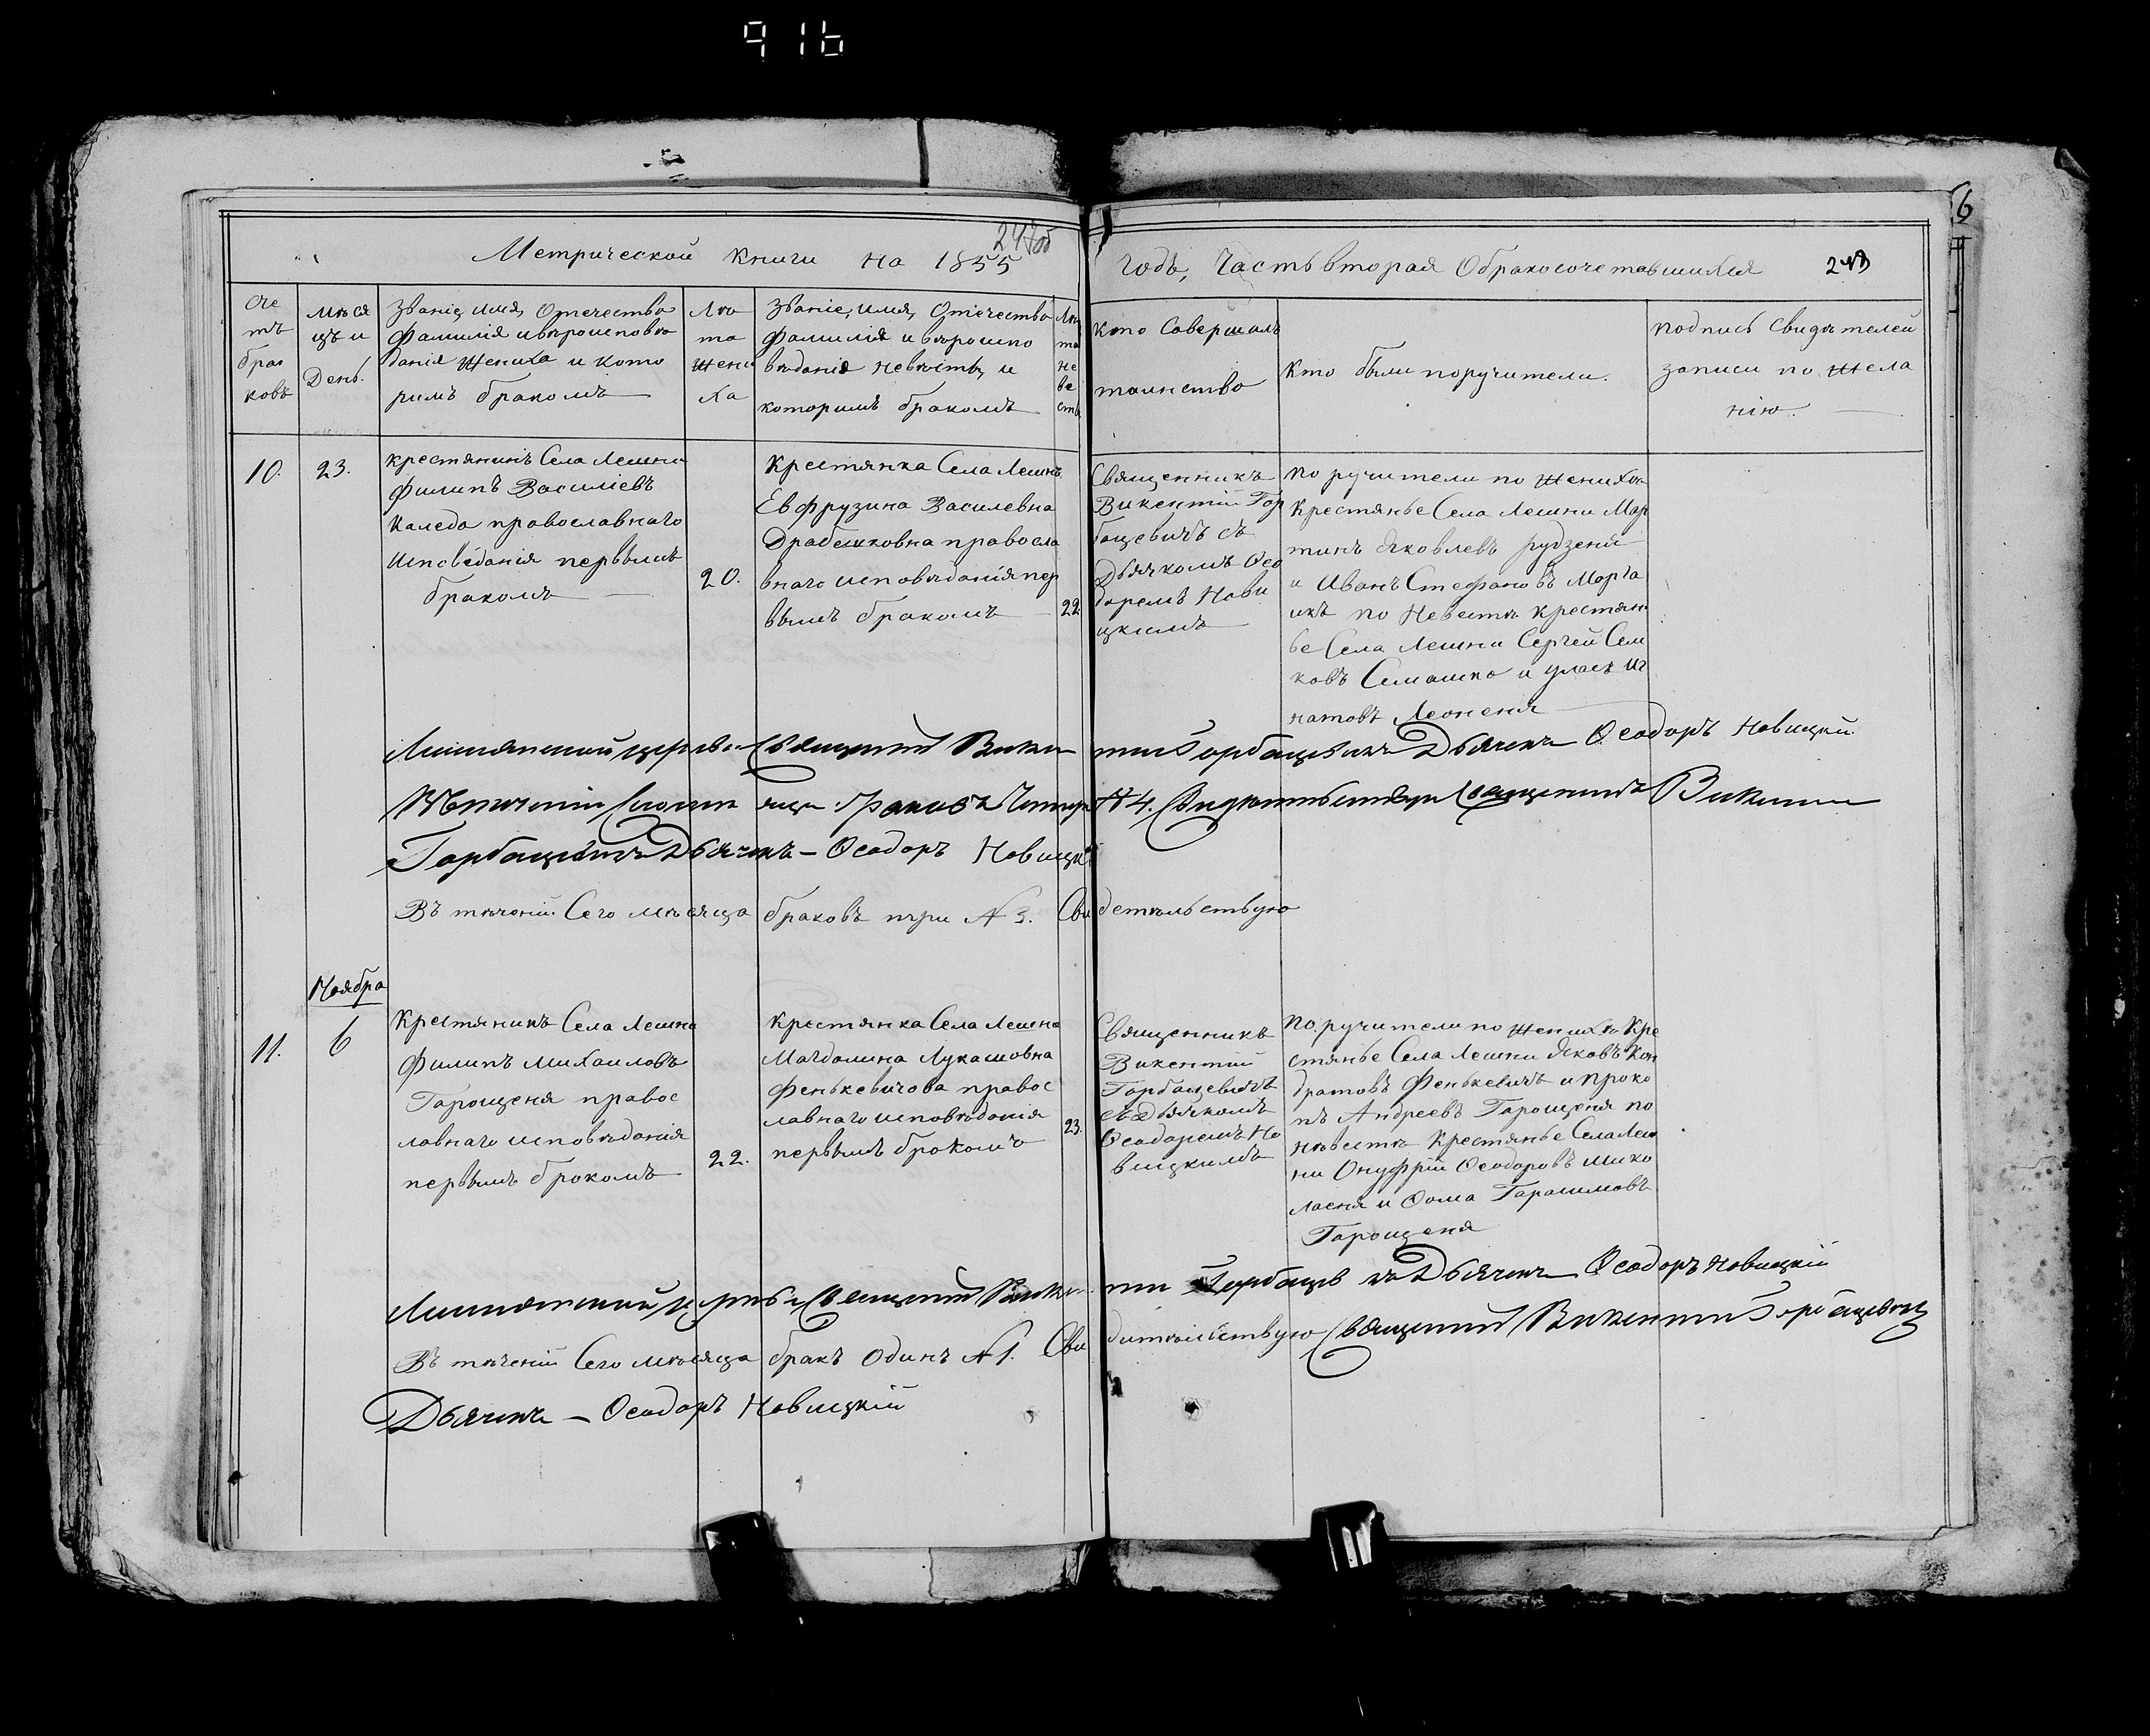 916
6
247 об
Метрической книги на 1855
годъ, Часть вторая О бракосочетавшихся
Сче
тъ
бра
ковъ
Мѣся
цъ и
День.
Званіе, имя, Отечество
Фамилія и вѣроисповѣ
данія Жениха и кото
римъ бракомъ
Лѣ
та
Жени
ха
Званіе, имя, Отечество
Фамилія и вѣроиспо
вѣданія невѣсты, и
которимъ бракомъ
Лѣ
та
не
ве
сты
кто Совершалъ
таинство
Кто были поручители.
подпись Свидѣтелей
записи по Жела
нію.
10.
23.
крестянинъ Села Лешна
Филипъ Василіевъ
Каледа православнаго
Исповеданія первымъ
бракомъ
20.
Крестянка Села Лешнѣ
Евфрузина Василевна
Драбешковна правосла
внаго исповѣданія пер
вымъ бракомъ
22.
Священникъ
Викентій Гор
бацевичъ съ
Дьячкомъ Ѳео
доремъ Нови
цкимъ
поручители по Женихѣ
Крестянье Села Лешни Мар
тинъ Яковлевъ рудзеня
и Иванъ Стефановъ Марга
икъ по Невестѣ Крестян
ье Села Лешни Сергей Сем
ковъ Семашко и уласъ Иг
натовъ Леоненя
Священникъ Викентій Горбацевичъ Дьячекъ Ѳеодоръ Новицкій
№ 4. Священникъ Викентій
Горбацевичъ Дьячекъ – Ѳеодоръ Новицкій
Въ тѣченіи Сего мѣсяца браковъ три № 3. Свидетельствую
Ноября
11.
6
Крестянинъ Села Лешна
Филипъ Михаиловъ
Гарощеня правос
лавнаго исповѣданія
первымъ бракомъ
22.
Крестянка Села Лешна
Магдалина Лукашовна
Фенькевичова правос
лавнаго исповѣданія
первымъ бракомъ
23.
Священникъ
Викентій
Горбацевичъ
съ Дьячкомъ
Ѳеодоремъ Но
вицкимъ
поручители по Женихѣ Кре
стянье Села Лешни Яковъ Кон
дратовъ Фенькевичъ и проко
пъ Андреевъ Гарощеня по
Невѣстѣ Крестянье Села Леш
ни Онуфрій Ѳеодоровъ Мико
лаеня и Ѳома Гарасимовъ
Гарощеня
Священникъ Викентій Горбацевичъ Дьячекъ Ѳеодоръ Новицкій
Въ тѣченіи Сего мѣсяца бракъ Одинъ № 1. Свидѣтельствую Священникъ Викентій Горбацевичъ
Дьячекъ – Ѳеодоръ Новицкій